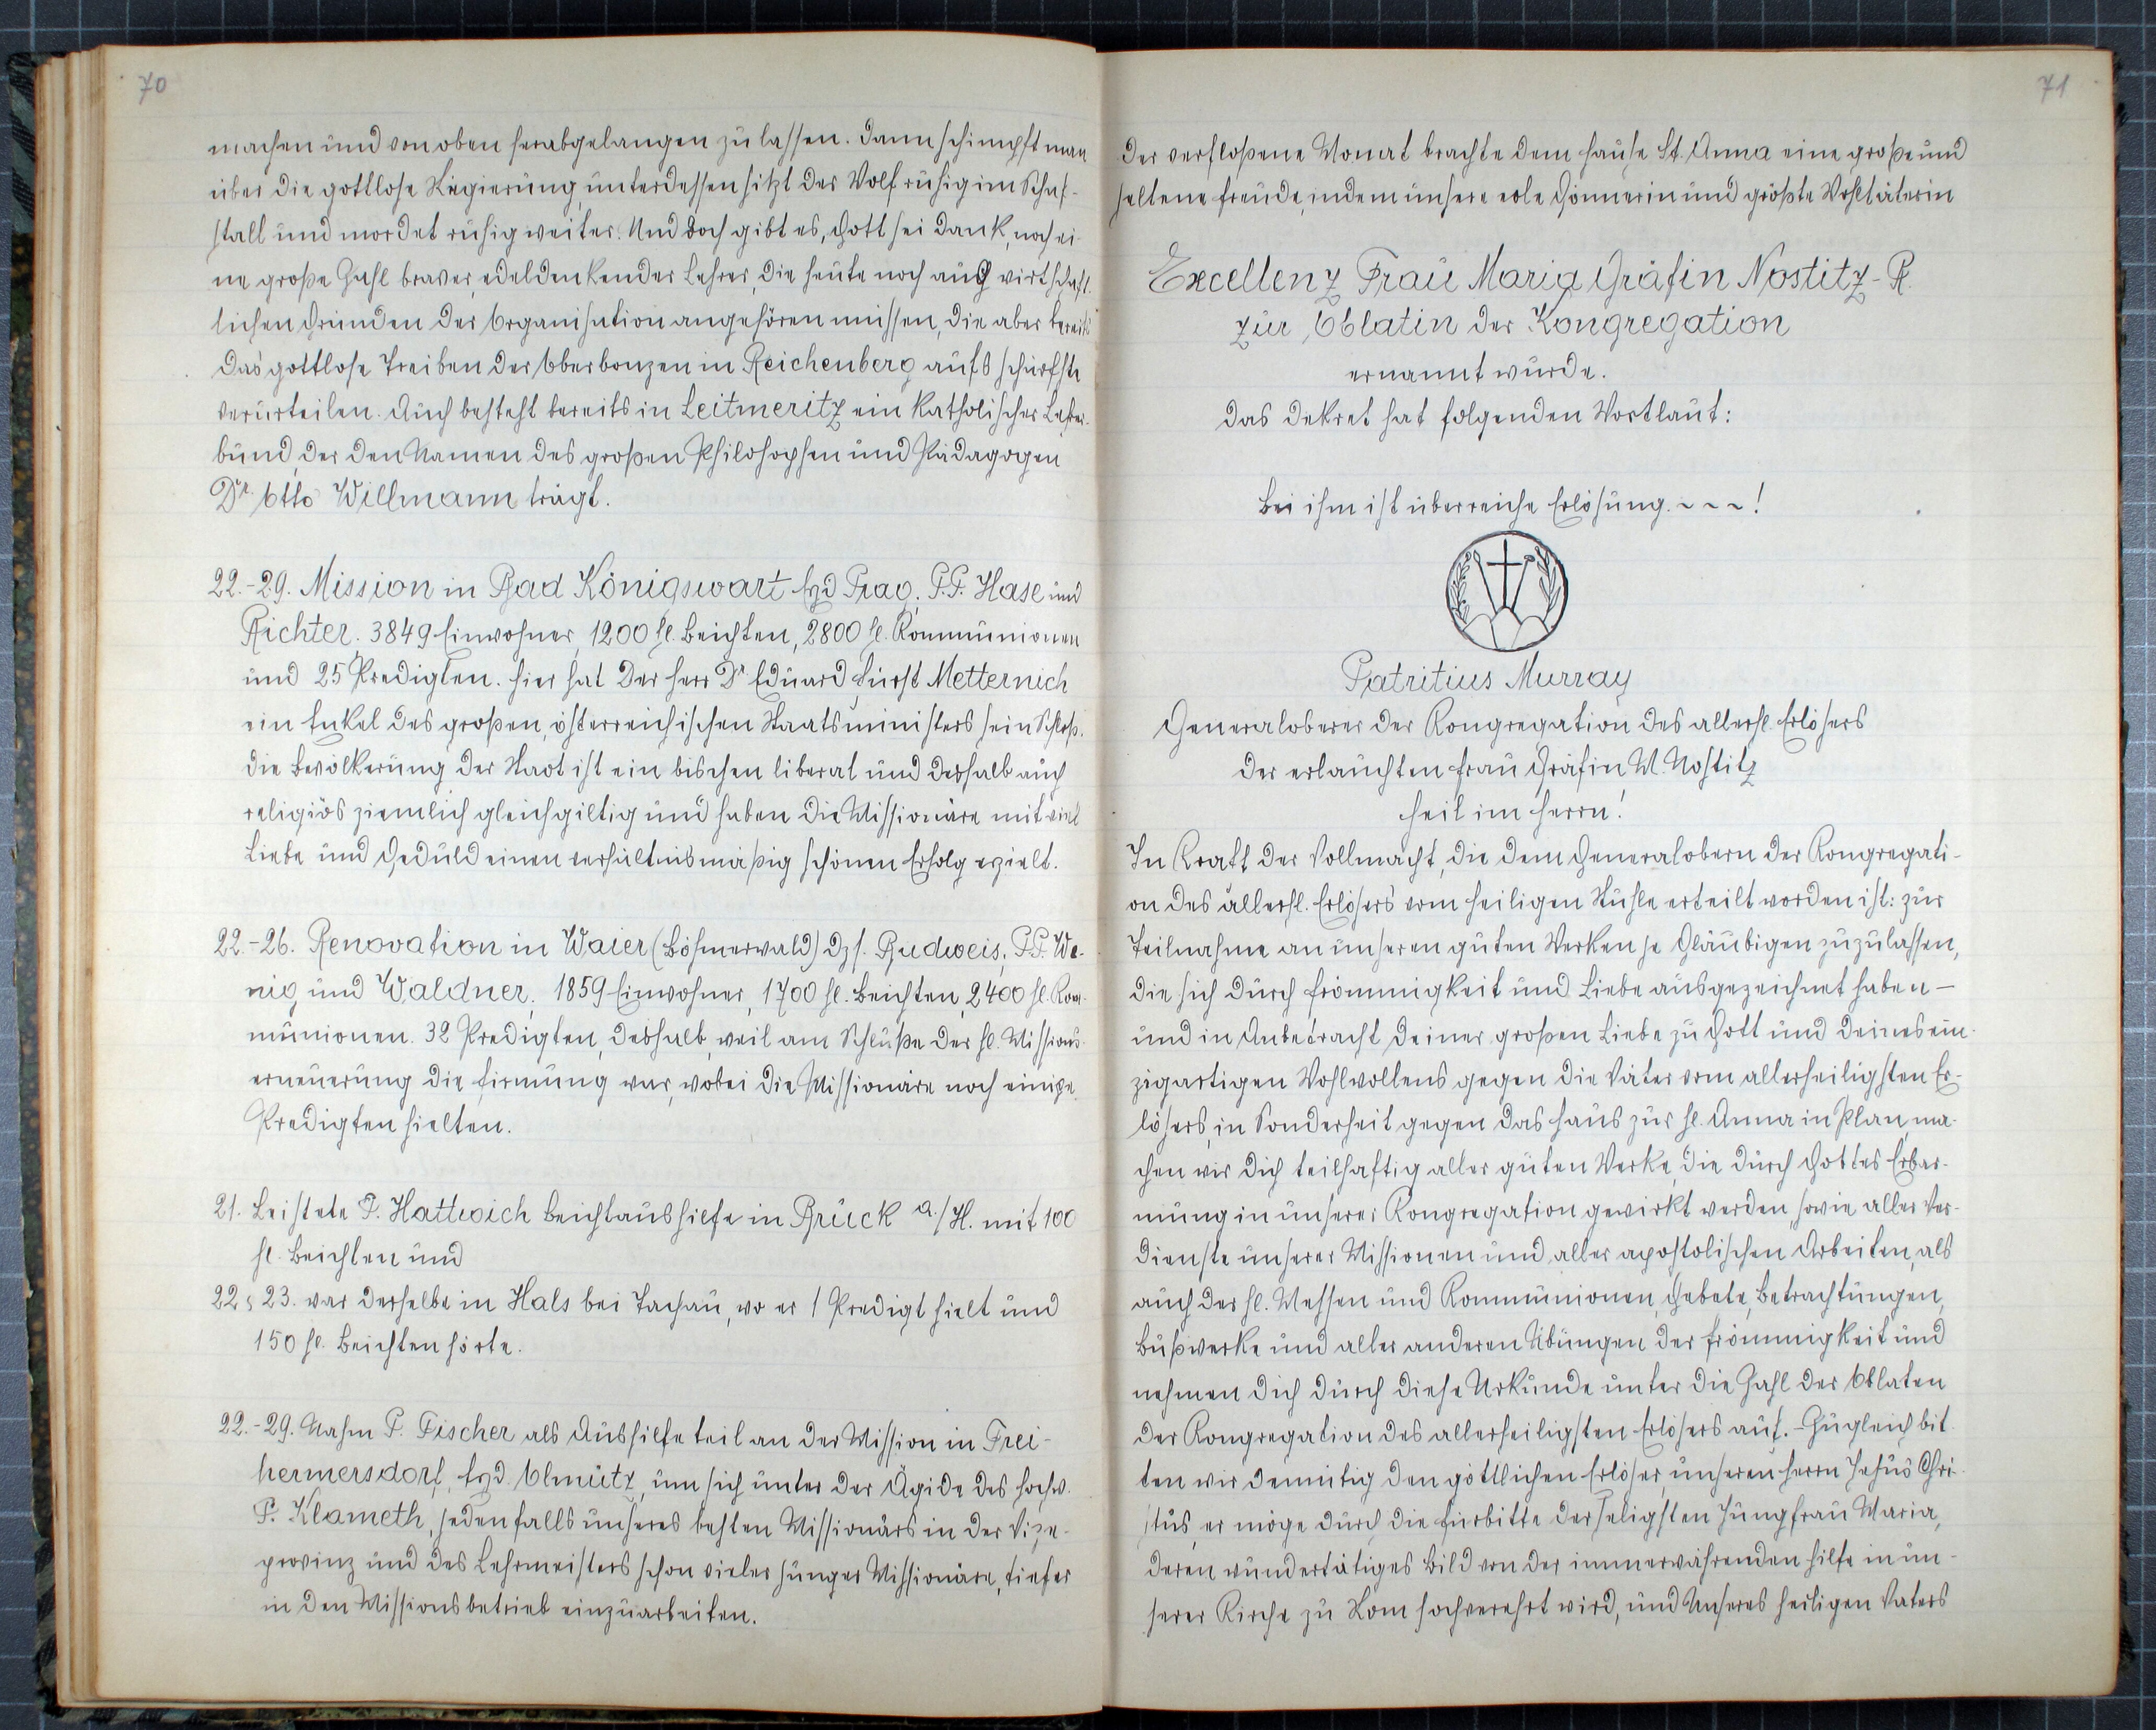 70
machen und von oben herabgelangen zu lassen. Dann schimpft man
über die gottlose Regierung, unterdessen sitzt der Wolf ruhig im Schaf-
stall und mordet ruhig weiter. Und doch gibt es, Gott sei Dank, noch ei-
ne große Zahl braver, edeldenkender Lehrer, die heute noch aus wirtschaft-
lichen Gründen der Organisation angehören müssen, die aber bereits
das gottlose Treiben der Oberbonzen in Reichenberg aufs schärfste
verurteilen. Auch besteht bereits in Leitmeritz ein katholischer Lehrer-
bund, der den Namen des großen Philosophen und Pädagogen
Dr. Otto Willmann trägt.
22.-29. Mission in Bad Königswart Ezd Prag, P.P. Hase und
Richter. 3849 Einwohner, 1200 hl. Beichten, 2800 hl. Kommunionen
und 25 Predigten. Hier hat der Herr Dr Eduard Fürst Metternich
ein Enkel des großen, österreichischen Staatsministers sein Schloß.
Die Bevölkerung der Stadt ist ein bischen liberal und deshalb auch
religiös ziemlich gleichgiltig und haben die Missionäre mit viel
Liebe und Geduld einen verhältnismäßig schönen Erfolg erzielt.
22.-26. Renovation in Waier (Böhmerwald) Dzs. Budweis, P.P. We-
nig und Waldner. 1859 Einwohner, 1700 hl. Beichten, 2400 hl. Kom-
munionen. 32 Predigten, deshalb, weil am Schluße der hl. Missions-
erneuerung die Firmung war, wobei die Missionäre noch einige
Predigten hielten.
21. Leistete P. Hattwich Beichtaushilfe in Brück a./H. mit 100
hl. Beichten und
22 & 23. war derselbe in Hals bei Tachau, wo er 1 Predigt hielt und
150 hl. Beichten hörte.
22.-29. Nahm P. Fischer als Aushilfe teil an der Mission in Frei-
hermersdorf, Ezd. Olmütz, um sich unter der Ägide des hochw.
P. Klameth, jedenfalls unseres besten Missionärs in der Vize-
provinz und des Lehrmeisters schon vieler junger Missionäre, tiefer
in den Missionsbetrieb einzuarbeiten.
71
Der verfloßene Monat brachte dem Hause St. Anna eine große und
seltene Freude, indem unsere edle Gönnerin und größte Wohltäterin
Excellenz Frau Maria Gräfin Nostitz-R.
zur Oblatin der Kongregation
ernannt wurde.
Das Dekret hat folgenden Wortlaut:
Bei ihm ist überreiche Erlösung. ~ ~ ~ !
Patritius Murray
Generaloberer der Kongregation des allerhl. Erlösers
der erlauchten Frau Gräfin M. Nostitz
Heil im Herrn!
In Kraft der Vollmacht, die dem Generalobern der Kongregati-
on des allerhl. Erlösers vom heiligen Stuhle erteilt worden ist: zur
Teilnahme an unseren guten Werken je Gläubigen zuzulassen,
die sich durch Frömmigkeit und Liebe ausgezeichnet haben -
und in Anbetracht Deiner großen Liebe zu Gott und Deines ein-
zigartigen Wohlwollens gegen die Väter vom allerheiligsten Er-
lösers, in Sonderheit gegen das Haus zur hl. Anna in Plan, ma-
chen wir Dich teilhaftig aller guten Werke, die durch Gottes Erbar-
mung in unserer Kongregation gewirkt werden, sowie aller Ver-
dienste unserer Missionen und aller apostolischen Arbeiten, als
auch der hl. Messen und Kommunionen, Gebete, Betrachtungen,
Bußwerke und aller anderen Übungen der Frömmigkeit und
nehmen Dich durch diese Urkunde unter die Zahl der Oblaten
der Kongregation des allerheiligsten Erlösers auf. - Zugleich bit-
ten wir demütig den göttlichen Erlöser, unseren Herrn Jesus Chri-
stus, er möge durch die Fürbitte der seligsten Jungfrau Maria,
deren wundertätiges Bild von der immerwährenden Hilfe in un-
serer Kirche zu Rom hochverehrt wird, und Unseres heiligen Vaters